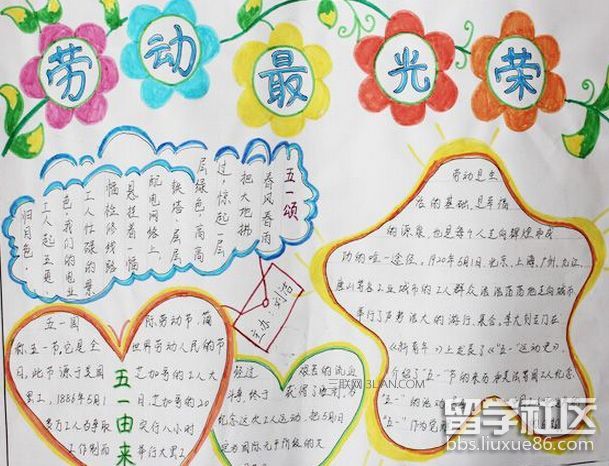 劳动最光荣
五一颂
春风春雨
把大地拂
过,惊起一层
层绿色,高高
铁塔,层层
配电网络上,
悬挂着一幅
幅检修线路
工人忙碌的景
色,我们的电业
工人起五更
劳动是生
存的基础,是幸福
的源泉,也是每个人走向辉煌和成
功的唯一途径。1920年5月1日,北京、上海、广州、九江、
唐山等各工业城市的工人群众浩浩荡荡地走向城市
举行了声势浩大的游行、集会。李大钊专门在
《新青年》上发表了《“五一”运动史》,
介绍了“五一”节的来历和美法等国工人纪念
“五一”的活动
“五一”作为
主办:刘浩
五一由来
五一国 际劳动节,简
称五一节,它是全 世界劳动人民的节
日。此节源于美国 芝加哥的工人大
罢工,1886年5月1 芝加哥的20
多万工人为争取 实行八小时
工作制而 举行大罢工
经过 艰苦的流血
斗争,终于 获得了胜利。为
纪念这次工人运动 把5月1日
定为国际无产阶级的大
三联网3LIAN.COM
留学社区
bbs.liuxue86.com